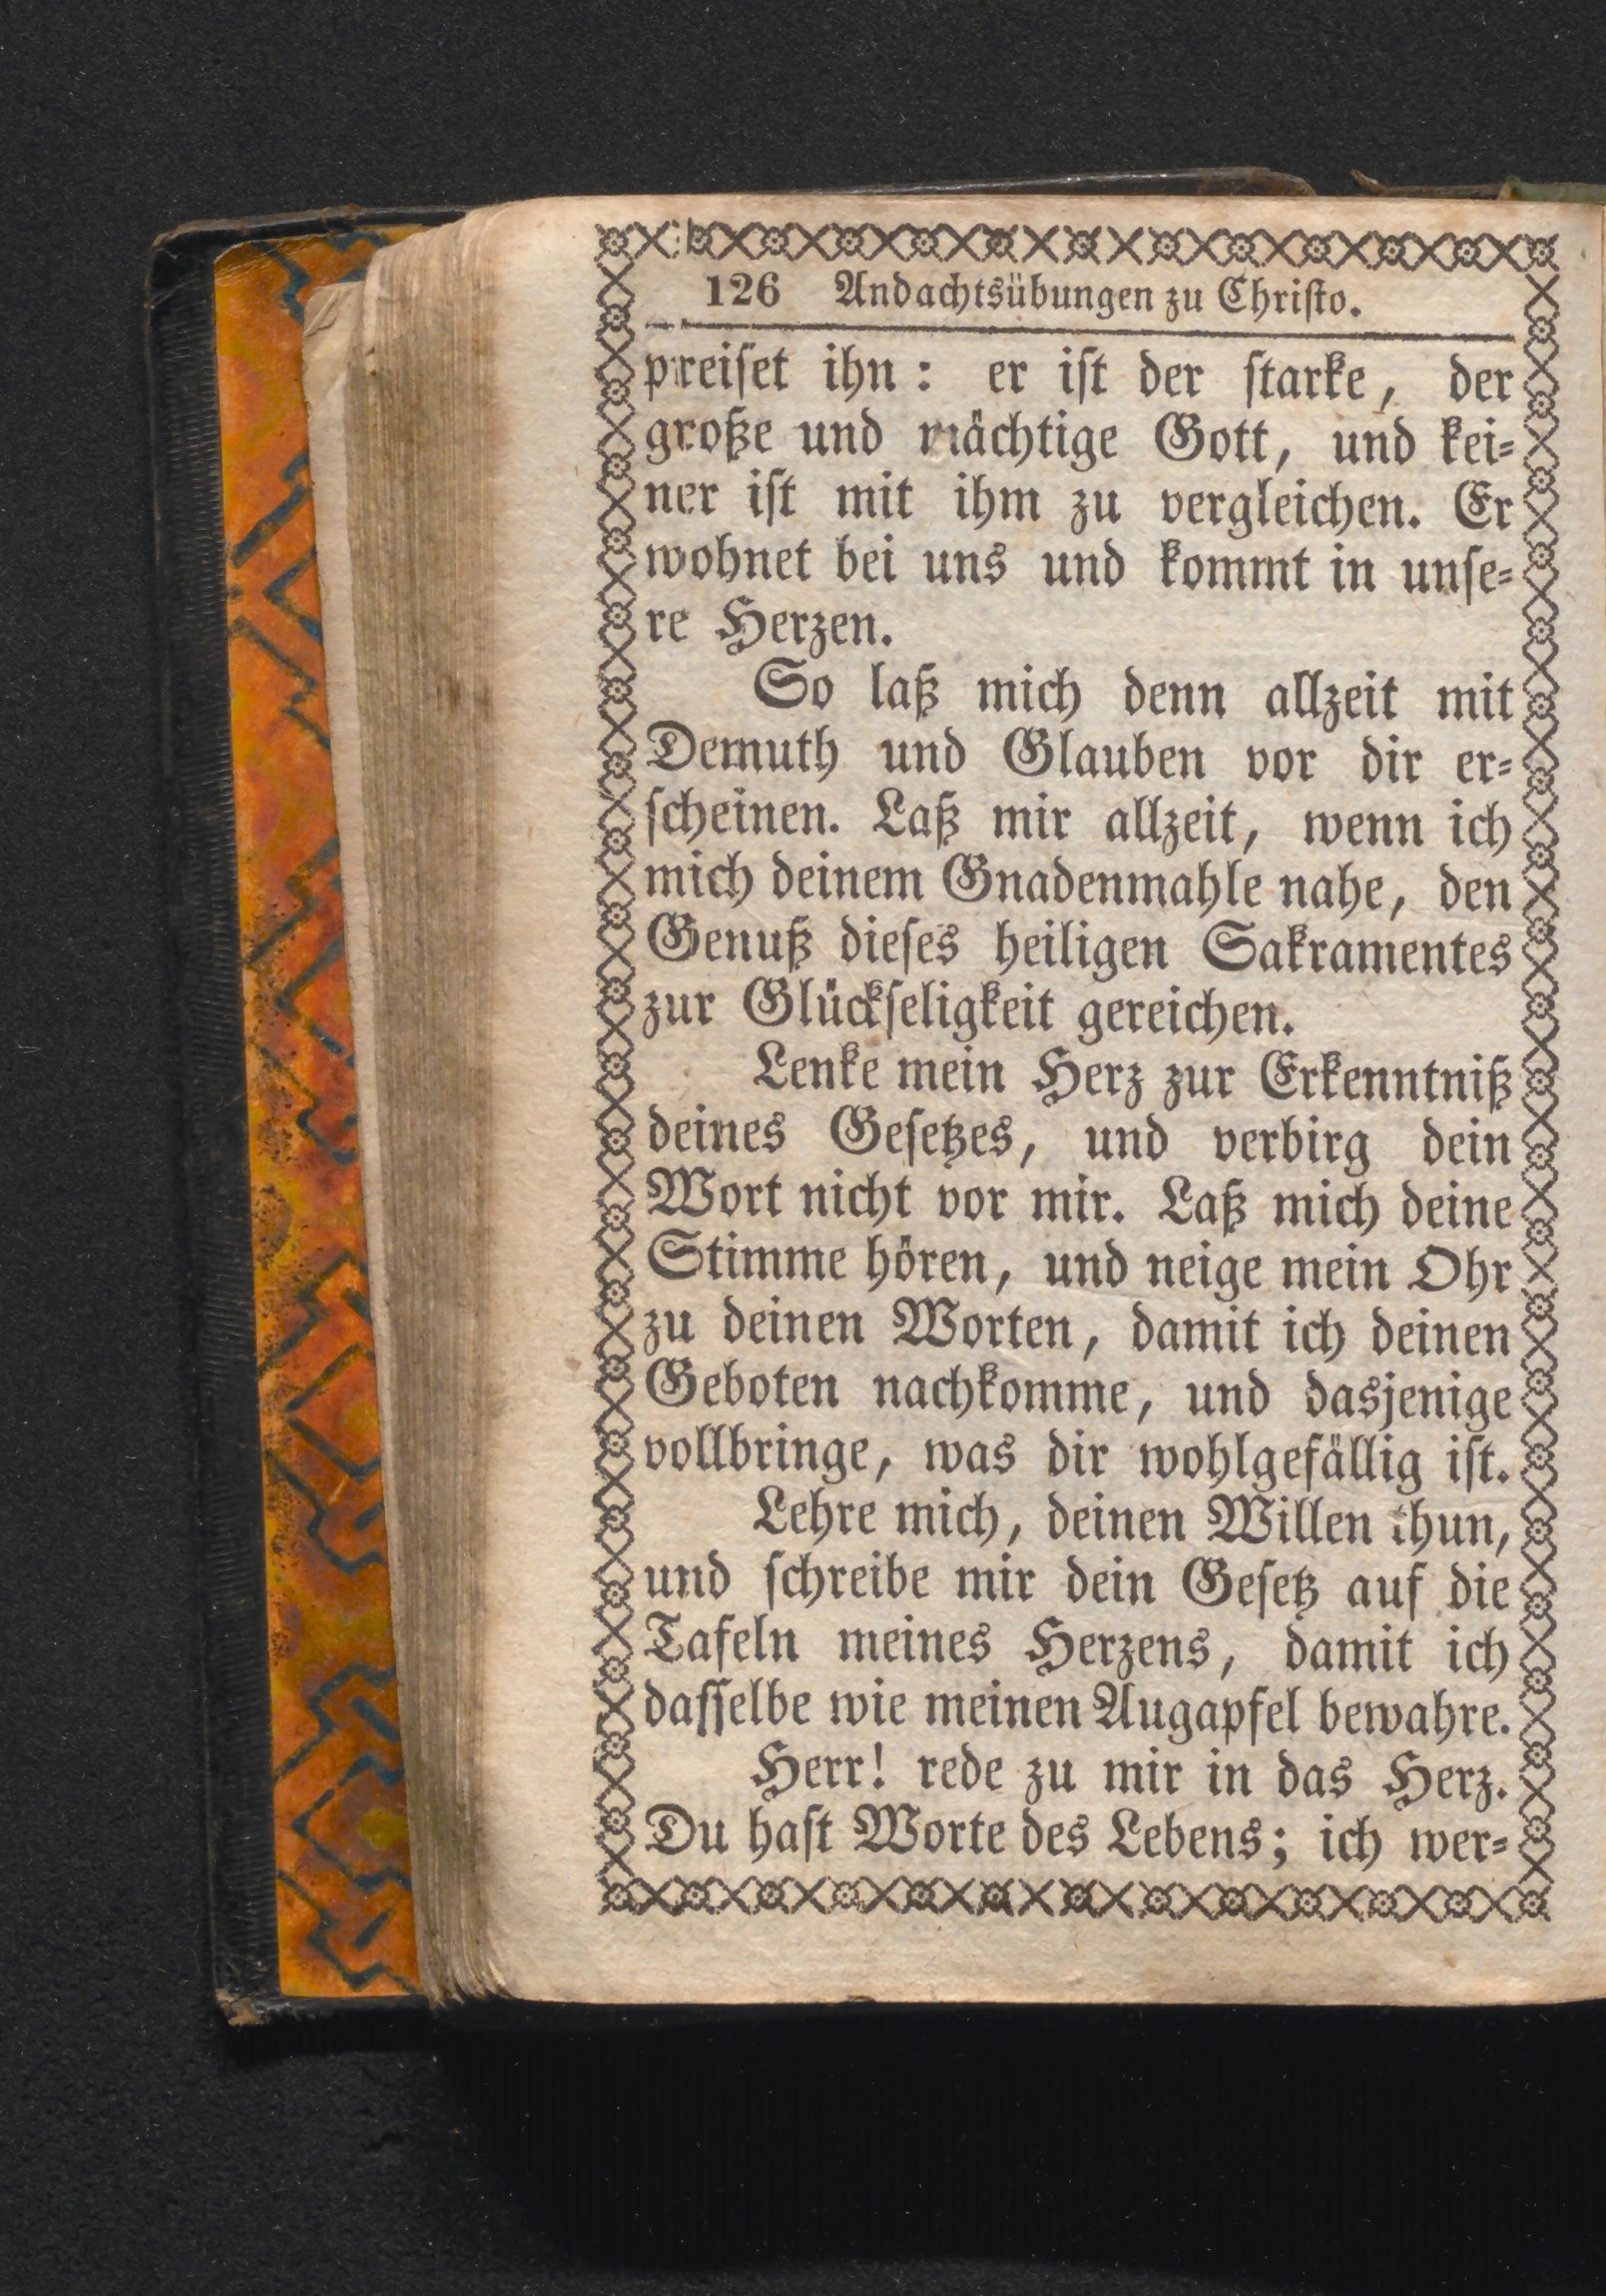 126 Andachtsübungen zu Chriſto.
preiſet ihn: er iſt der ſtarke, der
große und mächtige Gott, und kei⸗
ner iſt mit ihm zu vergleichen. Er
wohnet bei uns und kommt in unſe⸗
re Herzen.
So laß mich denn allzeit mit
Demuth und Glauben vor dir er⸗
ſcheinen. Laß mir allzeit, wenn ich
mich deinem Gnadenmahle nahe, den
Genuß dieſes heiligen Sakramentes
zur Glückſeligkeit gereichen.
Lenke mein Herz zur Erkenntniß
deines Geſetzes, und verbirg dein
Wort nicht vor mir. Laß mich deine
Stimme hören, und neige mein Ohr
zu deinen Worten, damit ich deinen
Geboten nachkomme, und dasjenige
vollbringe, was dir wohlgefällig iſt.
Lehre mich, deinen Willen thun,
und ſchreibe mir dein Geſetz auf die
Tafeln meines Herzens, damit ich
daſſelbe wie meinen Augapfel bewahre.
Herr! rede zu mir in das Herz.
Du haſt Worte des Lebens; ich wer⸗